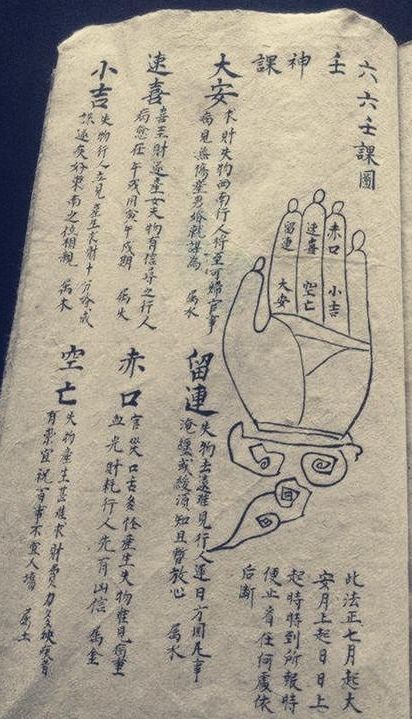 六壬神課
六壬課圖
留連
速喜
赤口
大安
空亡
小吉
此法正七月起大
安月上起日日上
起時時到所報時
便止看在何處依
后斷
大安
求財失物西南行人行至可官事
病見無傷產男婚謀為 屬水
留連
失物去遠難見行人運日方回凡事
淹纏或緩須知且暫放心 屬水
速喜
喜至財遇產女失物有信尋之行人
病愈在午戌用寅午戌期 屬火
赤口
官災口舌多怪產生失物難見病重
血光財耗行人先有凶信 屬金
小吉
失物行人立見產生求財十分成
速疾好東南之位相親 屬木
空亡
失物產生甚難求財費力多缺疾者
有祟宜祝百事不宜人 屬土